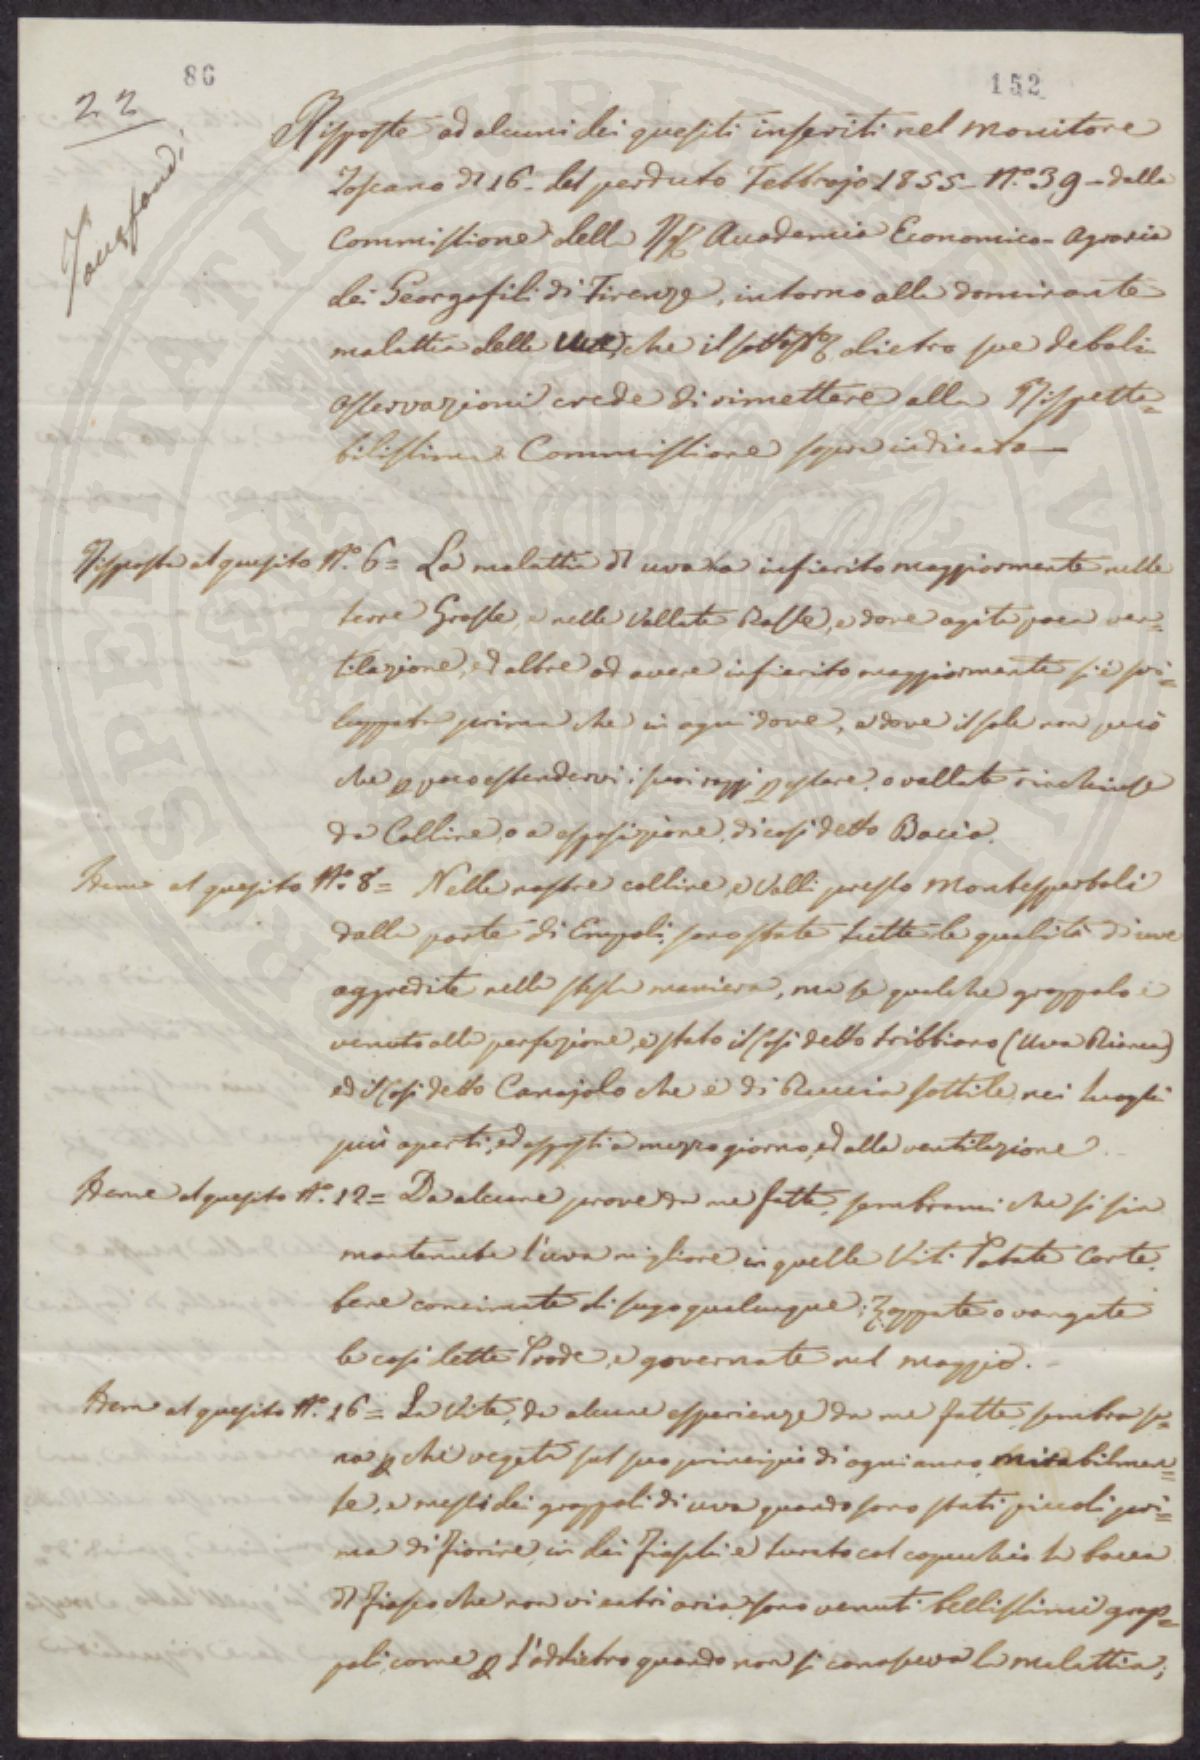 86
152
22
Risposte ad alcuni dei quesiti inseriti nel Monitore
Toscano dì 16. del perduto Febbrajo 1855 - N.o 39 - dalla
Commissione dell Accademia Economico - Agraria
dei Georgofili di Firenze, intorno alla dominante
malattia delle Uve, che il sottosto dietro sue deboli
osservazioni crede di rimettere alla Rispetta=
bilissima Commissione sopra indicata —
Risposta al quesito N.o 6 = La malattia dl uva ha infierito maggiormente nelle
terre Grasse, e nelle Vallate Basse, e dove agita poca ven=
tilazione, ed altre ad avere infierito maggiormente si è svi=
luppata prima che in ogni dove, e dove il sole non può
che p poco estendervi i suoi raggi p essere o vallate rinchiuse
da Colline, o a esposizione, di così detto Bacio.
Heme al quesito N.o 8 = Nelle nostre colline, e Valli presso Montespertoli
dalla parte di Empoli, sono state tutte le qualità di uve
aggredite nella stessa maniera, ma se qualche grappolo è
venuto alla perfezione, è stato il Così detto tribbiano (Uva Bianca)
ed il Così detto Canajolo che è di Buccia sottile, nei luoghi
più aperti, ed esposti a mezzo giorno, ed alla ventilazione.
Heme al quesito N.o 12 = Da alcune prove da me fatte, sembrami che si sia
mantenuta l'uva migliore in quelle Viti Potate Corte,
bene concimate di sugo qualunque; Zappate o vangate
le così dette Prode, e governate nel maggio. -
Heme al quesito N.o 16 = La Vite, da alcune esperienze da me fatte, sembra sa=
na p chè vegeta sul suo principio di ogni anno, mirabilmen=
te, e messi dei grappoli di uva quando sono stati piccoli pri=
ma di fiorire, in dei Fiaschi e turato col capecchio la bocca
dl fiasco che non vi entri aria, sono venuti bellissimi grap=
poli, come p l'addietro quando non si conosceva la malattia;